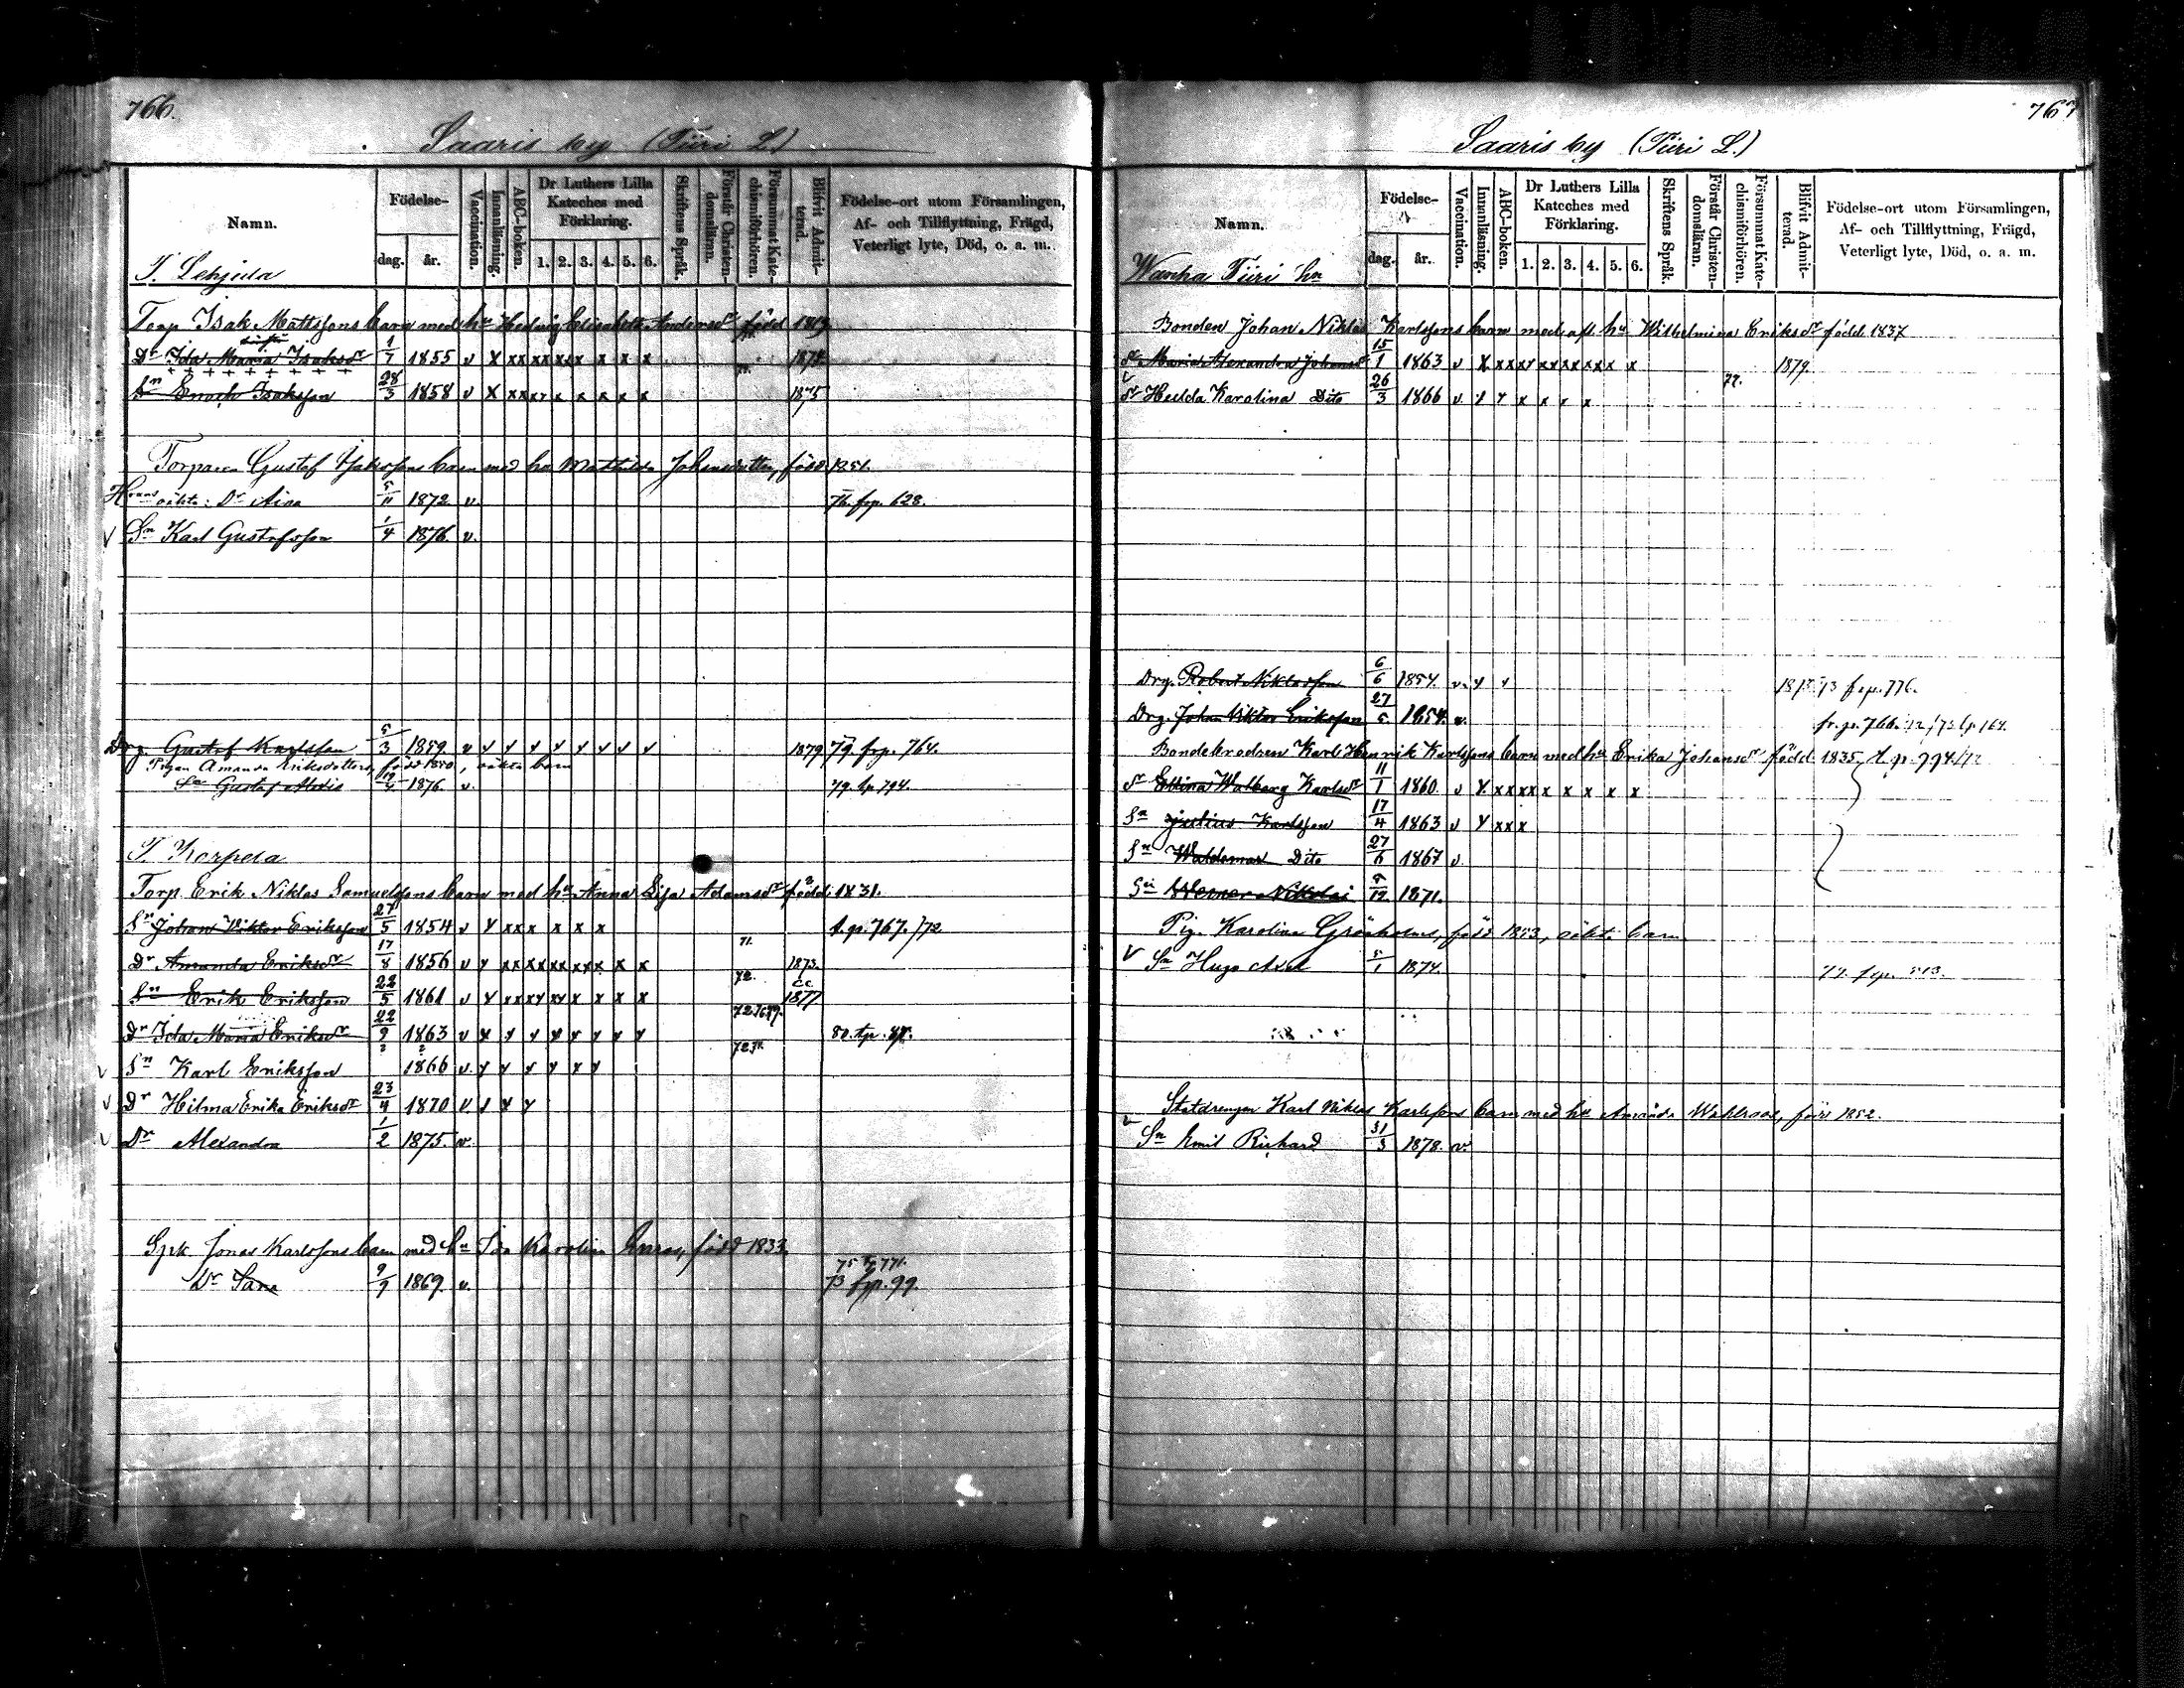 766.
Saaris by (Tiiri L.)
Namn.
Födelse-
dag.
år.
Vaccination.
Innanläsning.
ABC-boken.
Dr Luthers Lilla Kateches med Förklaring.
1. 2. 3. 4. 5. 6.
Skriftens Språk.
Förstår Christendomsläran.
Försummat Katechismiförhören.
Blifvit Admitterad.
Födelse-ort utom Församlingen, Af- och Tillflyttning, Frägd, Veterligt lyte, Död, o. a. m.
T. Lehjida
Torp Isak Mattssons barn med hu Hedvig Elisabeth Andersdr född 1819
Dr Ida Maria Isaksdr 1/7 1855 v x xx xx xxx x x x 1874
Sn Enoch Isaksson 28/3 1858 v x xx xx x x x x x 1875
Torparen Gustaf Isakssons barn med hu Mathilda Johansdotter, född 1851.
Hennes oäkta: Dr Aina 5/11 1872 v. 76. frp. 628.
v Sn Karl Gustafsson 1/4 1876. v.
Drg. Gustaf Karlsson 5/3 1859. v v v v v v v v v 1879 79. frp. 764.
Pigan Amanda Eriksdotters, född 1850, oäkta barn
Sn Gustaf Alexis 19/4 1876. v. 79. tp. 794.
T. Korpela
Torp. Erik Niklas Samuelssons barn med hu Anna Lisa Adamsdr född 1831.
Sn Johan Viktor Eriksson 27/5 1854 v y xxx x x x t.p. 767. /72
Dr Amanda Eriksdr 17/8 1856 v y xx xx xx xxx x x 71. 1873.
Sn Erik Eriksson 22/5 1861 v y xxxy xy x x x x 72. cc. 1877
Dr Ida Maria Eriksdr 22/9 1863 v y y y y y y y y 80. tp.
v Sn Karl Eriksson 1866 v. y y y y y y
v Dr Hilma Erika Eriksdr 23/4 1870 v y y y
v Dr Alexandra 1/2 1875. v.
Spk. Jonas Karlssons barn med hu Ida Karolina, född 1833.
Dr 9/9 1869. v. 75 tp 771. 73 frp. 99.
767
Saaris by (Tiiri L.)
Namn.
Födelse-
dag.
år.
Vaccination.
Innanläsning.
ABC-boken.
Dr Luthers Lilla Kateches med Förklaring.
1. 2. 3. 4. 5. 6.
Skriftens Språk.
Förstår Christendomsläran.
Försummat Katechismiförhören.
Blifvit Admitterad.
Födelse-ort utom Församlingen, Af- och Tillflyttning, Frägd, Veterligt lyte, Död, o. a. m.
Wanha Tiiri hn
Bonden Johan Niklas Karlssons barn med afl. hu Wilhelmina Eriksdr född 1837
dr Maria Alexandra Johansdr 15/1 1863 v x xxxy xxxxxxx x 1879
v dr Hedda Karolina Dito 26/3 1866 v. y y x x x x 77.
Drg. Robert Niklasson 6/6 1854. v. y y 73 frp. 776.
Drg. Johan Viktor Eriksson 27/5. 1854. v. fr. p. 766. /72 /73 tp 164.
Bondebrodren Karl Henrik Karlssons barn med hu Erika Johansdr född 1835 t. p. 794/72
dr Ettina Walborg Karlsdr 11/1 1860. v y xxxx x x x x x
Sn Julius Karlsson 17/4 1863 v y xxx
Sn Waldemar Dito 27/6 1867 v.
Sn Werner Nikolai /12. 1871.
Pig. Karolina Grönholms, född 1853, oäkta barn
v Sn Hugo Axel 5/1 1874.
Statdrengen Karl Niklas Karlssons barn med hu Amanda, född 1852.
v Sn Emil Richard 31/3 1878. v.